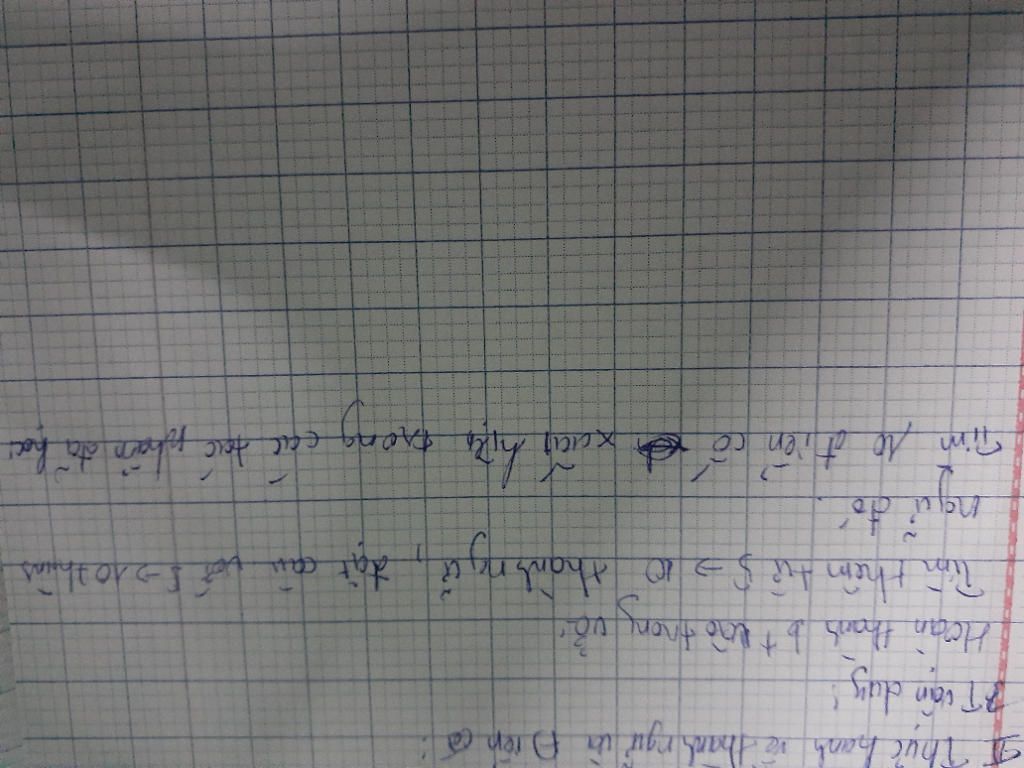 Thực hành về thành ngữ và Điển cố:
BT vận dụng:
Hoàn thành bt vào trong vở.
Tìm thêm từ 5 → 10 thành ngữ, đặt câu với 5 → 10 thành
ngữ đó.
Tìm 10 điển cố xuất hiện trong các tác phẩm đã học